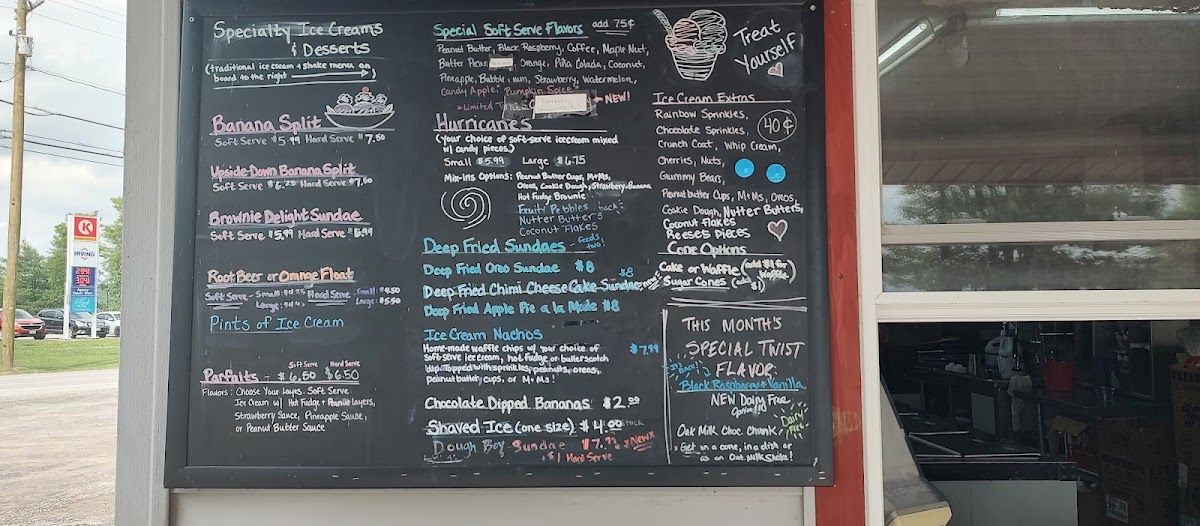 Specialty Ice Creams
& Desserts
(traditional ice cream & shake menu on
board to the right
Banana Split
Soft Serve $5.99 Hard Serve $7.50
Upside-Down Banana Split
Soft Serve Hard Serve $7.50
Brownie Delight Sundae
Soft Serve $5.99 Hard Serve
Root Beer or Orange Float
Soft Serve - Small Hard Serve Small: $4.50
Large: Large: $5.50
Pints of Ice Cream
Soft Serve Hard Serve
Parfaits - $6.50 $6.50
Flavors: Choose Your Layers. Soft Serve
Ice Cream w/ Hot Fudge + Peanut Layers,
Strawberry Sauce, Pineapple Sauce,
or Peanut Butter Sauce
Special Soft Serve Flavors add 75¢
Peanut Butter, Black Raspberry, Coffee, Maple Nut,
Butter Pecan Orange, Piña Colada, Coconut,
Pineapple, Bubble Gum, Strawberry, Watermelon,
Candy Apple, Pumpkin Spice
*Limited NEW!
Hurricanes
(your choice of soft-serve icecream mixed
w/ candy pieces)
Small $5.99 Large $6.75
Mix-ins Options: Peanut Butter Cups, M+Ms,
Oreos, Cookie Dough, Strawberry-Banana
Hot Fudge Brownie
Fruity Pebbles back!
Nutter Butters
Coconut Flakes
Deep Fried Sundaes - feeds two!
Deep Fried Oreo Sundae $8
Deep Fried Chimi Cheese Cake Sundae $8
Deep Fried Apple Pie a la Mode $8
Ice Cream Nachos
Home-made waffle chips w/ your choice of $7.99
soft serve ice cream, hot fudge or butterscotch
dip. Topped with sprinkles, peanuts, oreos,
peanut butter cups, or M+Ms!
Chocolate Dipped Bananas $2
Shaved Ice (one size) $4.00
Dough Boy Sundae $7.99 *New*
+ $1 Hard Serve
Treat
Yourself
Ice Cream Extras
Rainbow Sprinkles, 40¢
Chocolate Sprinkles,
Crunch Coat, Whip Cream,
Cherries, Nuts,
Gummy Bears,
Peanut butter Cups, M+Ms, Oreos,
Cookie Dough, Nutter Butters,
Coconut Flakes
Reeses Pieces
Cone Options
Cake or Waffle (add $1 for
Waffle)
Sugar Cones
THIS MONTH'S
SPECIAL TWIST
FLAVOR:
Black Raspberry + Vanilla
NEW Dairy Free
Option!!
Oat Milk Choc. Chunk Dairy Free
*Get in a cone, in a dish or
as an Oat Milk Shake!
K
CIRCLE K
IRVING